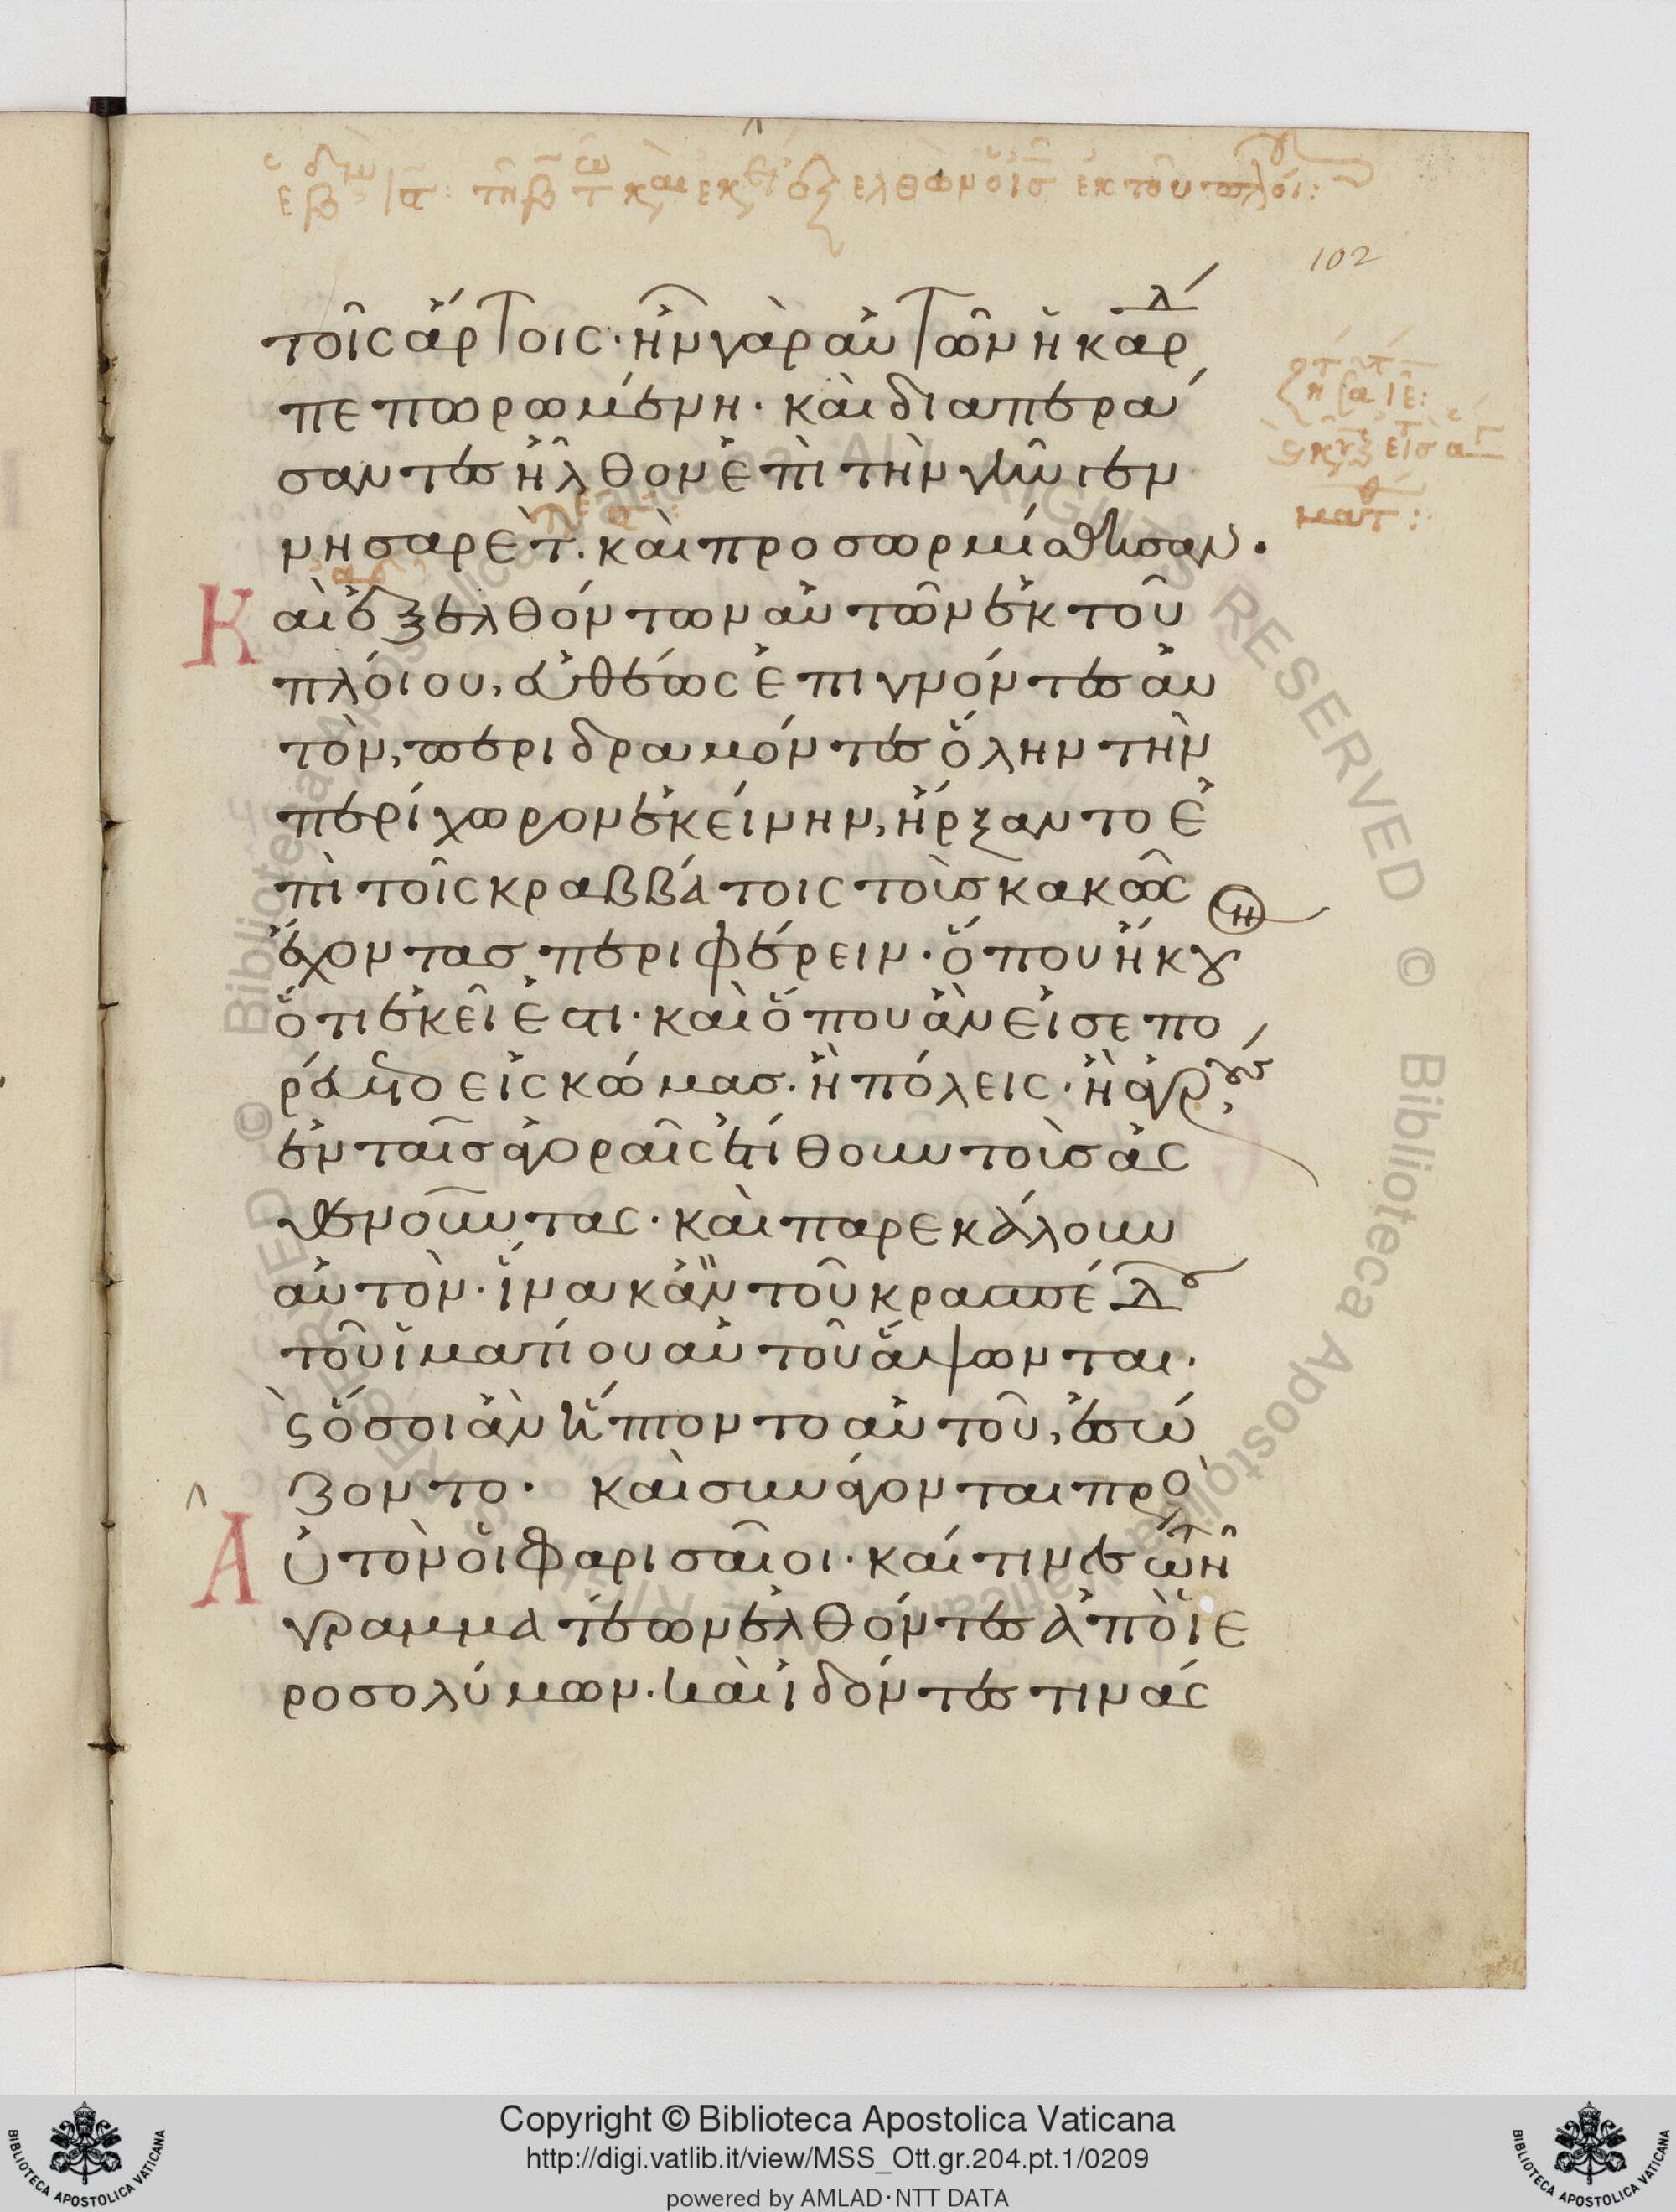 102
τοῖς ἄρτοις· ἦν γὰρ αὐτῶν ἡ καρδ
πεπωρωμένη· καὶ διαπερά
σαντες ἦλθον ἐπὶ τὴν γῆν γεν
νησαρέτ. καὶ προσωρμίσθησαν.
Καὶ ἐξελθόντων αὐτῶν ἐκ τοῦ
πλοίου, εὐθέως ἐπιγνόντες αὐ
τὸν, περιδραμόντες ὅλην τὴν
περίχωρον ἐκείνην, ἤρξαντο ἐ
πὶ τοῖς κραββάτοις τοὺς κακῶς
ἔχοντας περιφέρειν· ὅπου ἤκου
ὅτι ἐκεῖ ἐστι· καὶ ὅπου ἂν εἰσεπο
ρεύετο εἰς κώμας. ἢ πόλεις· ἢ ἀγρούς
ἐν ταῖς ἀγοραῖς ἐτίθουν τοὺς ἀσ
θενοῦντας· καὶ παρεκάλουν
αὐτὸν· ἵνα κἂν τοῦ κρασπέδ
τοῦ ἱματίου αὐτοῦ ἅψωνται·
ϗ ὅσοι ἂν ἥπτοντο αὐτοῦ, ἐσώ
ζοντο· καὶ συνάγονται πρὸ
Αὐτὸν οἱ φαρισαῖοι· καί τινες τῶν
γραμματέων ἐλθόντες ἀπὸ ἱε
ροσολύμων. καὶ ἰδόντες τινὰς
Copyright © Biblioteca Apostolica Vaticana
http://digi.vatlib.it/view/MSS_Ott.gr.204.pt.1/0209
powered by AMLAD·NTT DATA
BIBLIOTECA APOSTOLICA VATICANA
BIBLIOTECA APOSTOLICA VATICANA